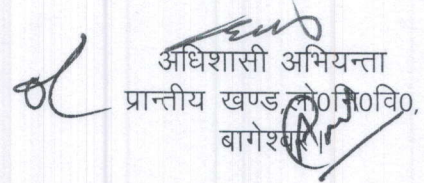 अधिशासी अभियन्ता
प्रान्तीय खण्ड,लो0नि0वि0,
बागेश्वर।